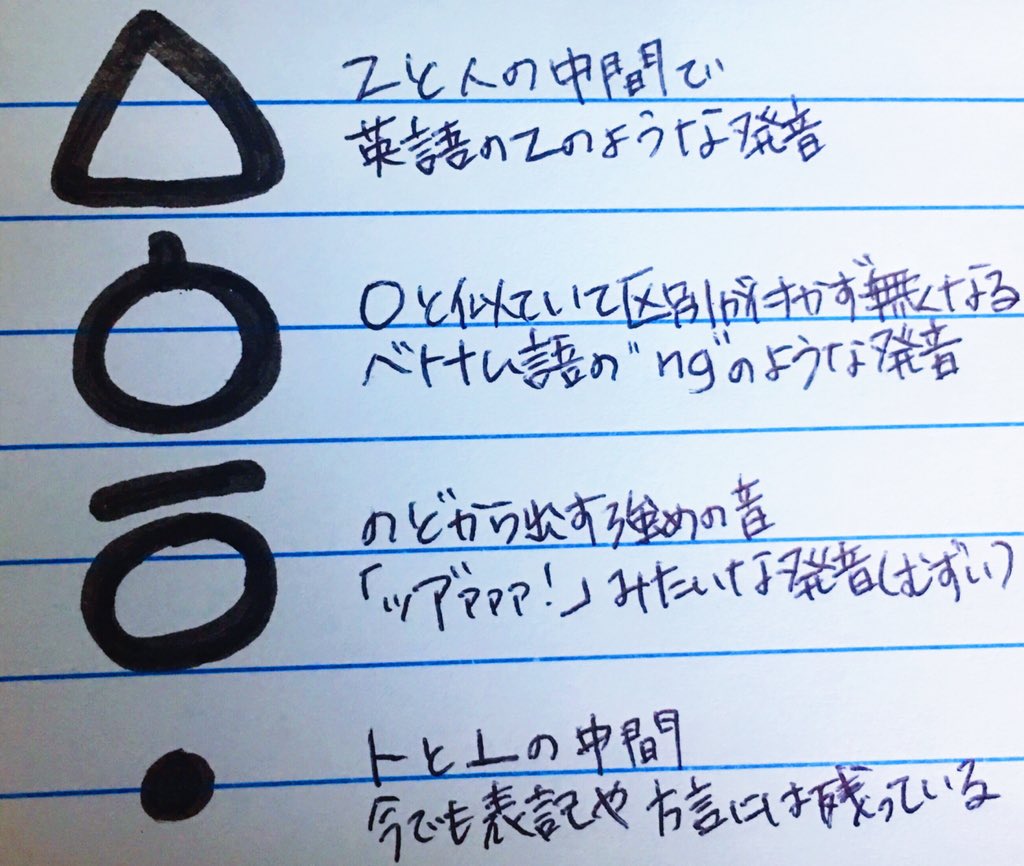 ㅿ
Zとㅅの中間で
英語のZのような発音
ㆁ
ㅇと似ていて区別がきかず無くなる
ベトナム語の"ng"のような発音
ㆆ
のどから出す強めの音
「ッア゛ァァァ!」みたいな発音(むずい)
ㆍ
ㅏとㅗの中間
今でも表記や方言には残っている